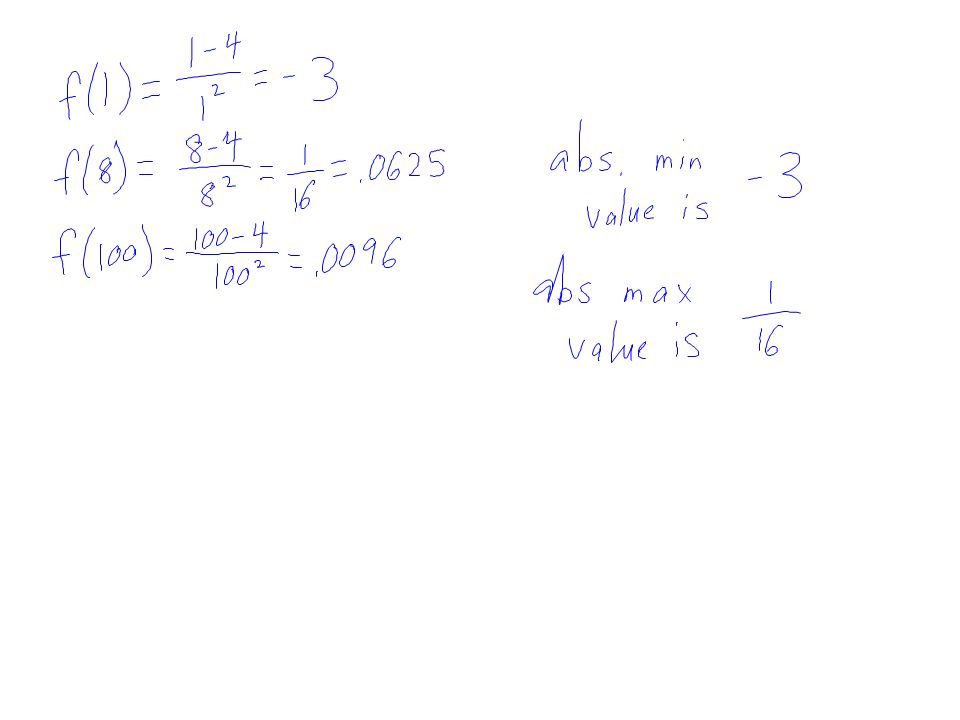 f(1) = (1-4)/1² = -3
f(8) = (8-4)/8² = 1/16 = .0625
f(100) = (100-4)/100² = .0096
abs. min value is -3
abs max value is 1/16